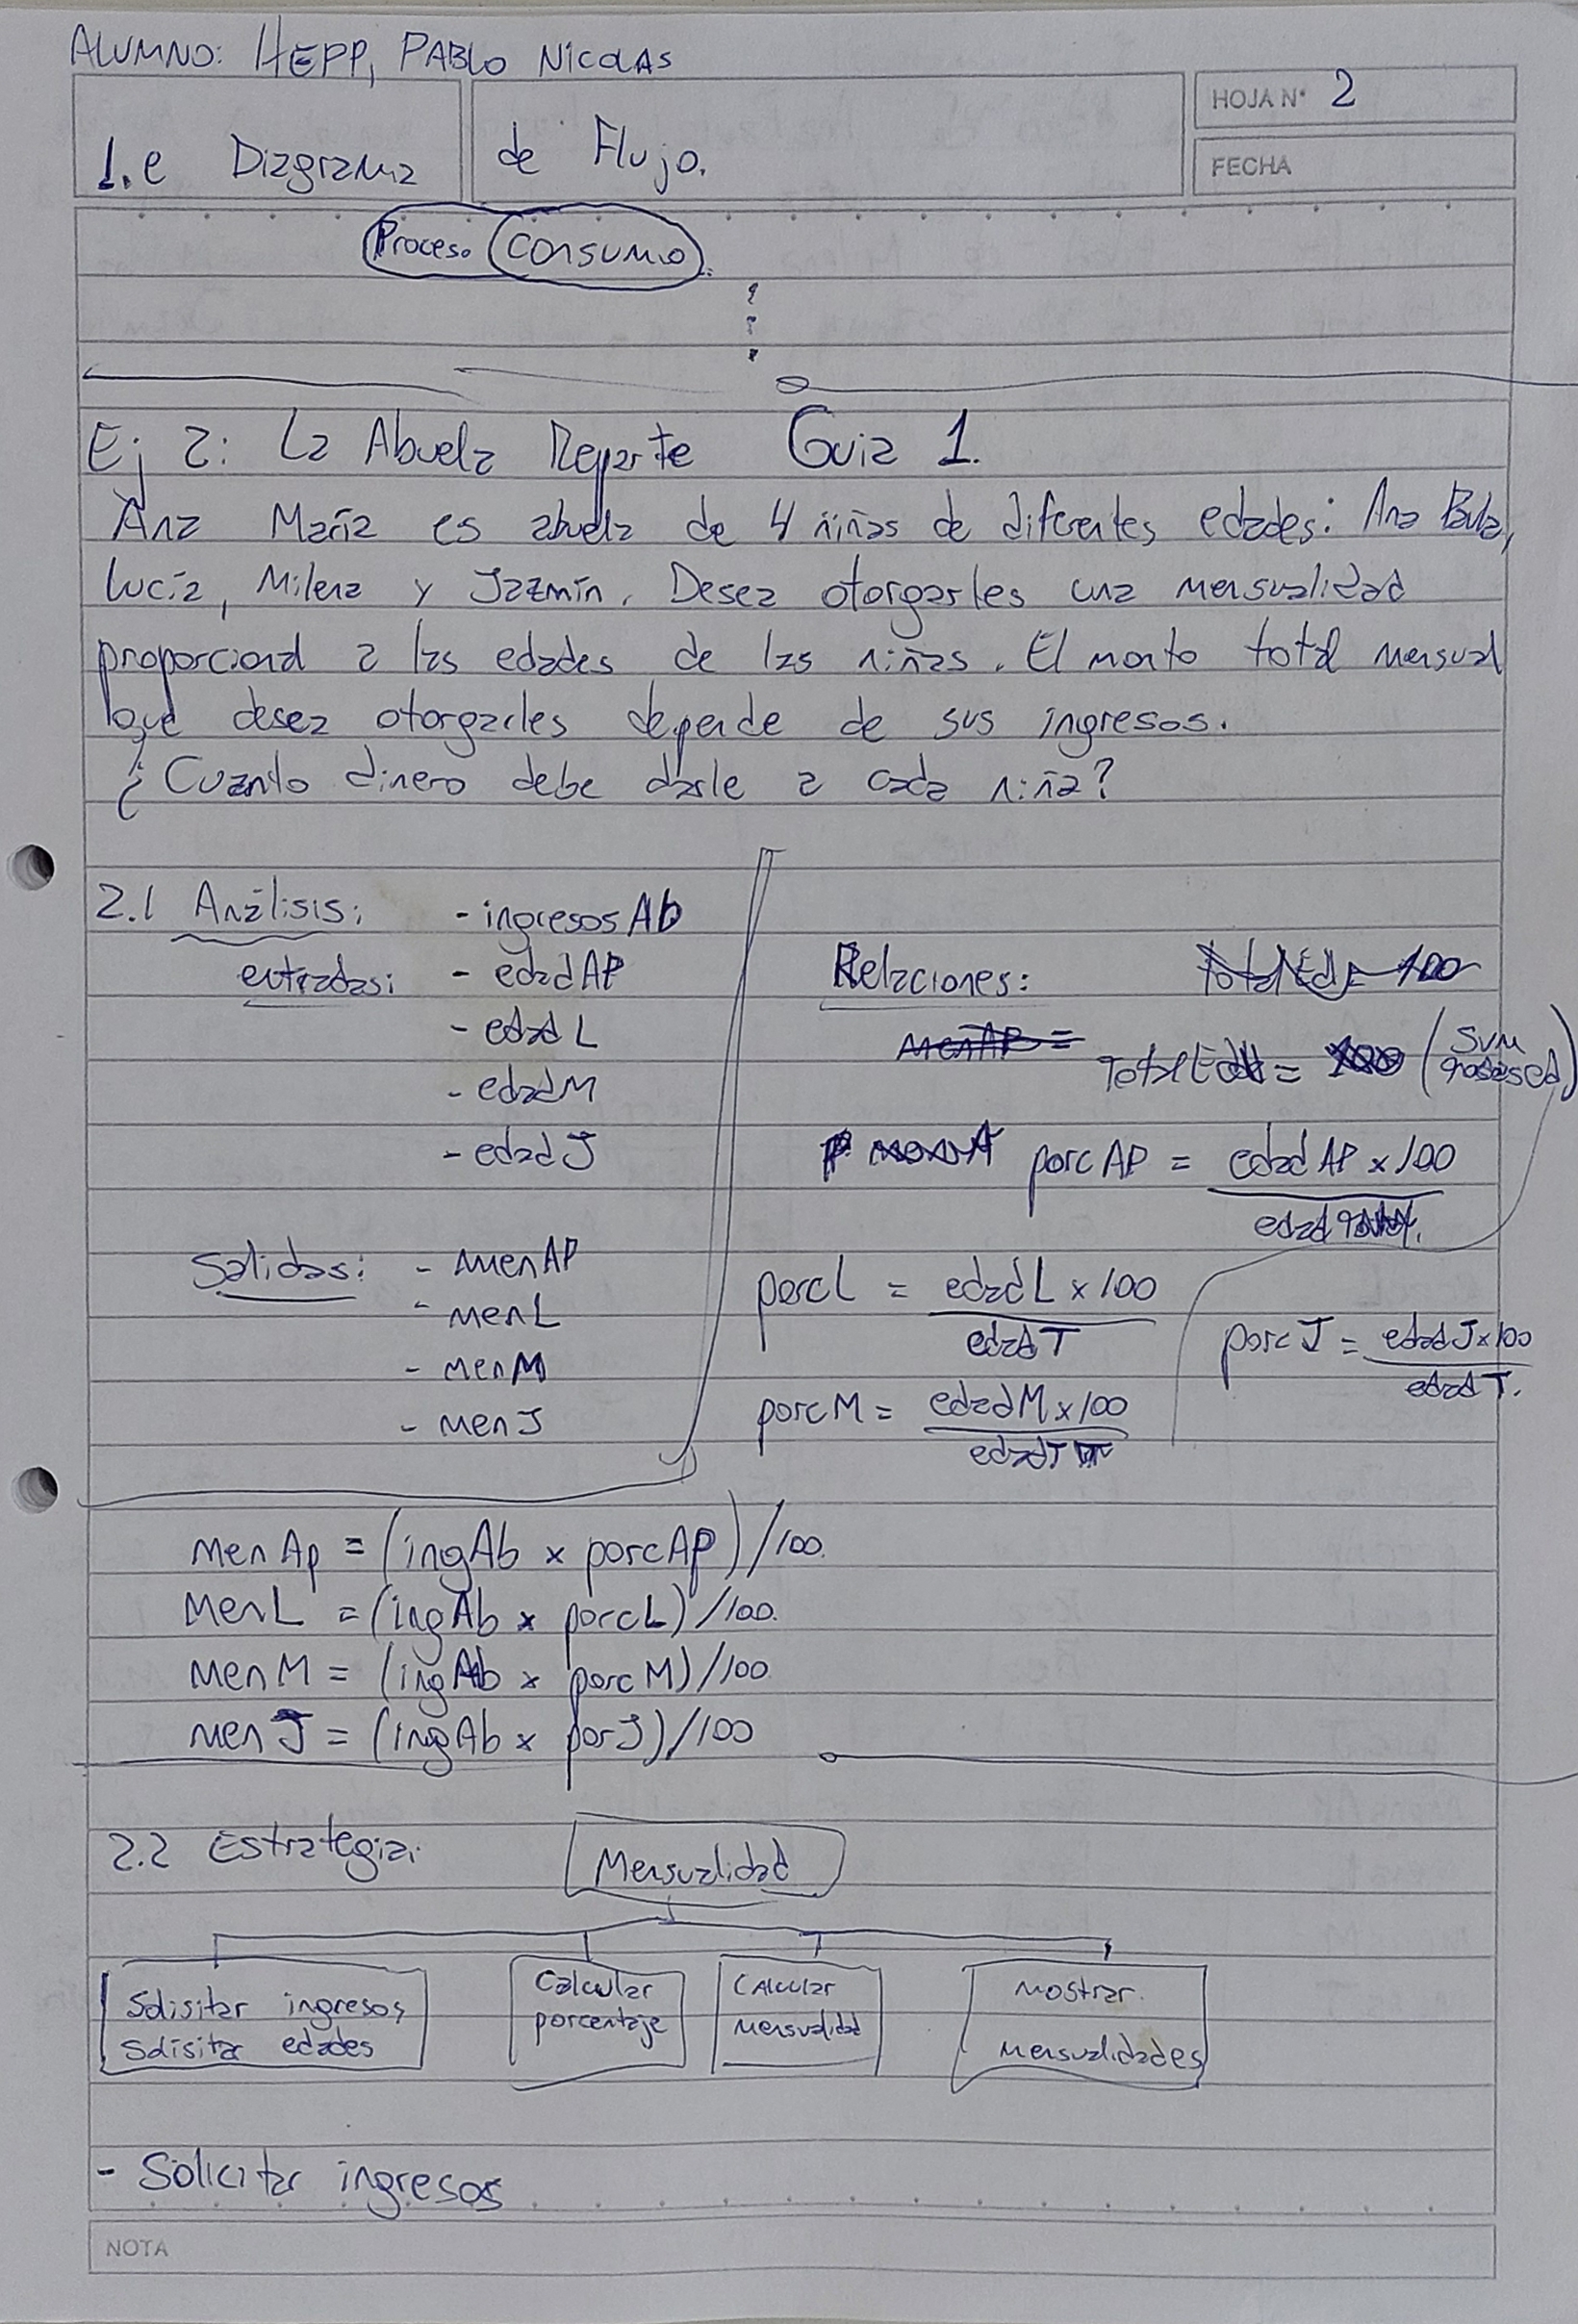 ALUMNO: HEPP, PABLO NICOLAS
HOJA N° 2
FECHA
1.e Diagrama de Flujo.
Proceso Consumo
Ej 2: La Abuela Reparte Guia 1.
Ana María es abuela de 4 niñas de diferentes edades: Ana Paula,
Lucía, Milena y Jazmín. Desea otorgarles una mensualidad
proporcional a las edades de las niñas. El monto total mensual
que desea otorgarles depende de sus ingresos.
¿Cuanto dinero debe darle a cada niña?
2.1 Análisis:
entradas:
- ingresosAb
- edadAP
- edadL
- edadM
- edadJ
Salidas:
- menAP
- menL
- menM
- menJ
Relaciones:
TotalEd = 100
menAP =
TotalEdad = (Sum
porcAP = edadAP x 100
edad
porcL = edadL x 100
edadT
porcM = edadM x 100
edadT
porcJ = edadJ x 100
edadT.
menAp = (ingAb x porcAP)/100.
MenL = (ingAb x porcL)/100.
MenM = (ingAb x porcM)/100
menJ = (ingAb x porJ)/100
2.2 Estrategia:
Mensualidad
Solisitar ingresos,
Solisitar edades
Calcular
porcentaje
CAlcular
mensualidad
mostrar.
mensualidades
- Solicitar ingresos
NOTA